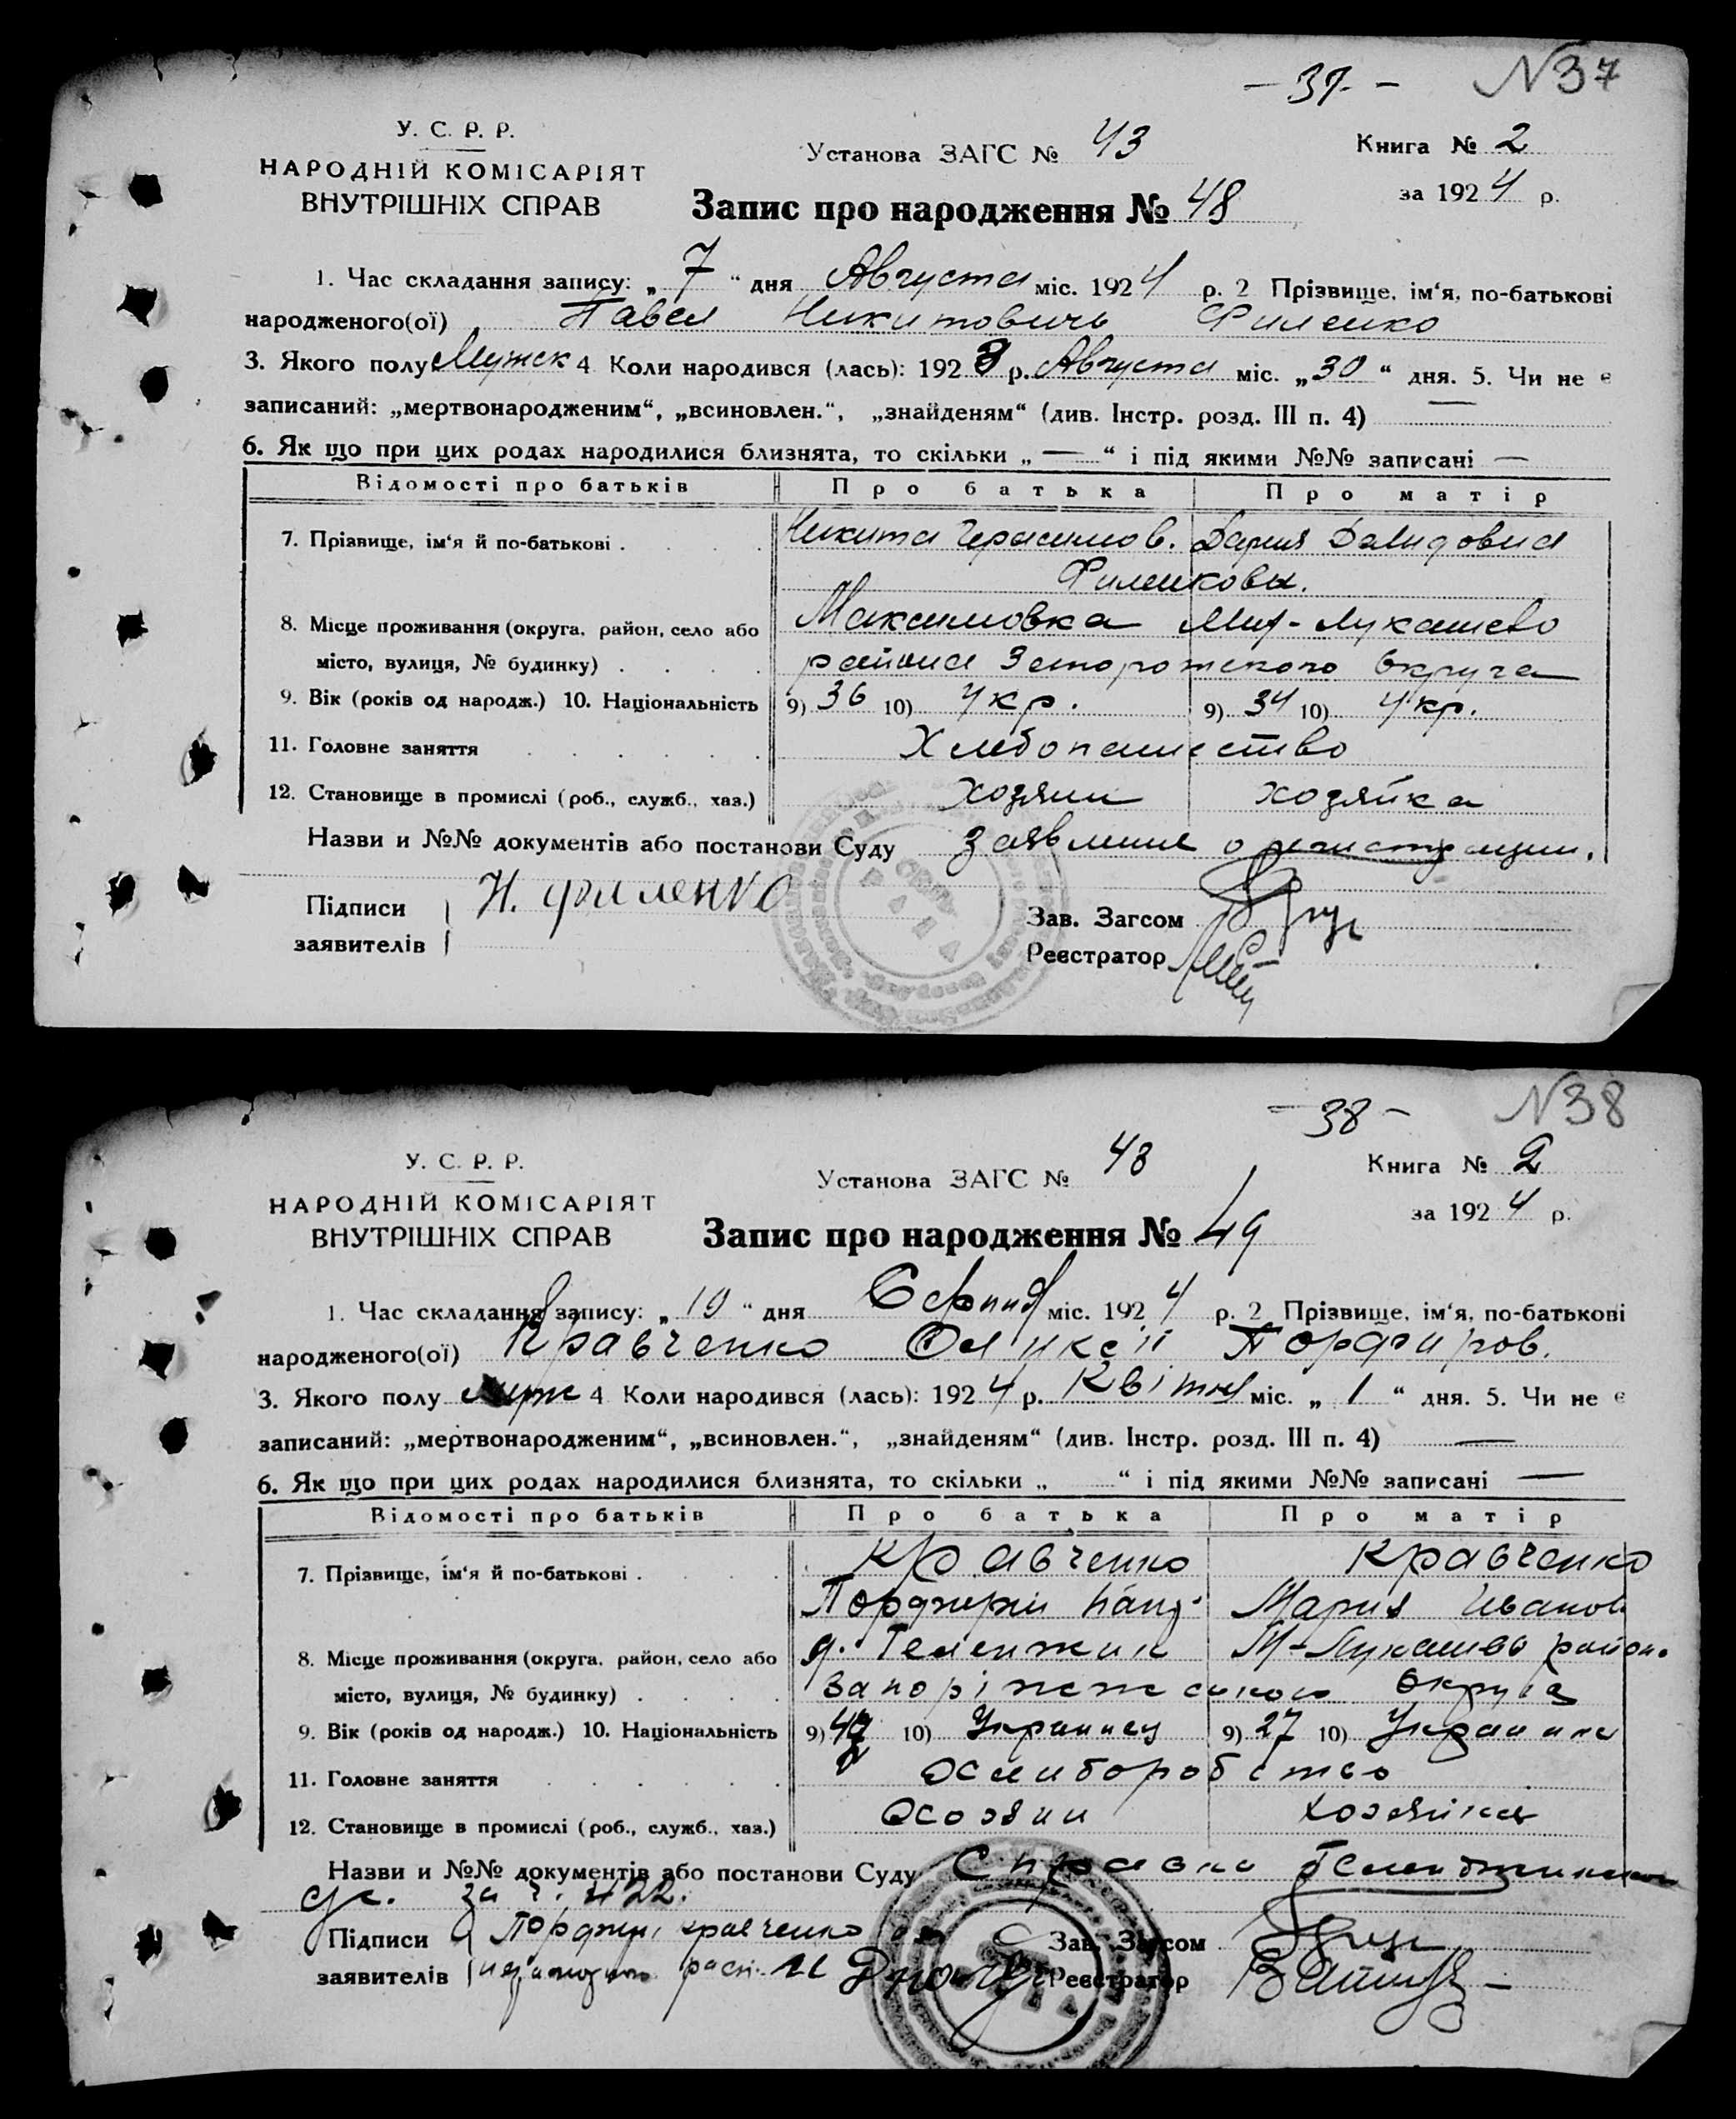 — 37. — N37
У. С. Р. Р.
НАРОДНІЙ КОМІСАРІЯТ
ВНУТРІШНІХ СПРАВ
Установа ЗАГС № 43
Книга № 2
за 1924 р.
Запис про народження № 48
1. Час складання запису: „7“ дня Августа міс. 1924 р. 2 Прізвище, ім‘я, по-батькові
народженого(ої) Павел Никитовичь Филенко
3. Якого полу Мужск 4 Коли народився (лась): 1923 р. Августа міс. „30“ дня. 5. Чи не є
записаний: „мертвонародженим“, „всиновлен.“, „знайденям“ (див. Інстр. розд. III п. 4) —
6. Як що при цих родах народилися близнята, то скільки „—“ і під якими №№ записані —
Відомості про батьків Про батька Про матір
7. Прізвище, ім‘я й по-батькові . Никита Герасимов. Дария Давидовна
Филенковы.
8. Місце проживання (округа, район, село або Максимовка Мих-Лукашево
місто, вулиця, № будинку) . района Запорожского Округа
9. Вік (років од народж.) 10. Національність 9) 36 10) Укр. 9) 34 10) Укр.
11. Головне заняття Хлебопашество
12. Становище в промислі (роб., служб., хаз.) хозяин хозяйка
Назви и №№ документів або постанови Суду заявление о регистрации.
Підписи Н. Филенко
заявителів
Зав. Загсом
Реєстратор
— 38 — N38
У. С. Р. Р.
НАРОДНІЙ КОМІСАРІЯТ
ВНУТРІШНІХ СПРАВ
Установа ЗАГС № 43
Книга № 2
за 1924 р.
Запис про народження № 49
1. Час складання запису: „10“ дня Серпня міс. 1924 р. 2 Прізвище, ім‘я, по-батькові
народженого(ої) Кравченко Оликсій Порфиров.
3. Якого полу муж 4 Коли народився (лась): 1924 р. Квітня міс. „1“ дня. 5. Чи не є
записаний: „мертвонародженим“, „всиновлен.“, „знайденям“ (див. Інстр. розд. III п. 4) —
6. Як що при цих родах народилися близнята, то скільки „ “ і під якими №№ записані —
Відомості про батьків Про батька Про матір
7. Прізвище, ім‘я й по-батькові . Кравченко Кравченко
Порфирий Мария Иванов
8. Місце проживання (округа, район, село або М-Лукашево район.
місто, вулиця, № будинку) . Округа
9. Вік (років од народж.) 10. Національність 9) 10) Украинец 9) 27 10)
11. Головне заняття
12. Становище в промислі (роб., служб., хаз.) хозяйка
Назви и №№ документів або постанови Суду Справка
за ч. 422.
Підписи Порфирі Кравченко
заявителів
Зав. Загсом
Реєстратор